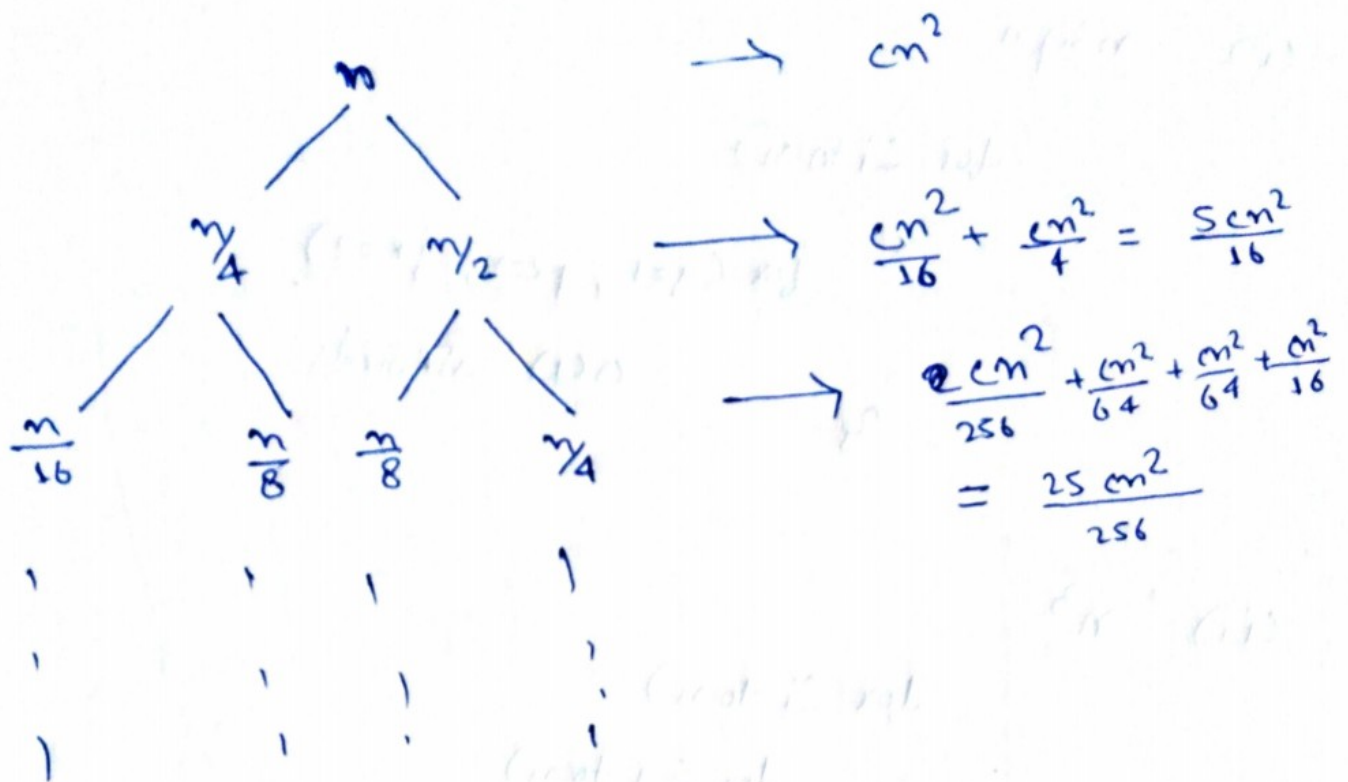 n → cn²
n/4 n/2 → cn²/16 + cn²/4 = 5cn²/16
n/16 n/8 n/8 n/4 → cn²/256 + cn²/64 + cn²/64 + cn²/16
= 25cn²/256